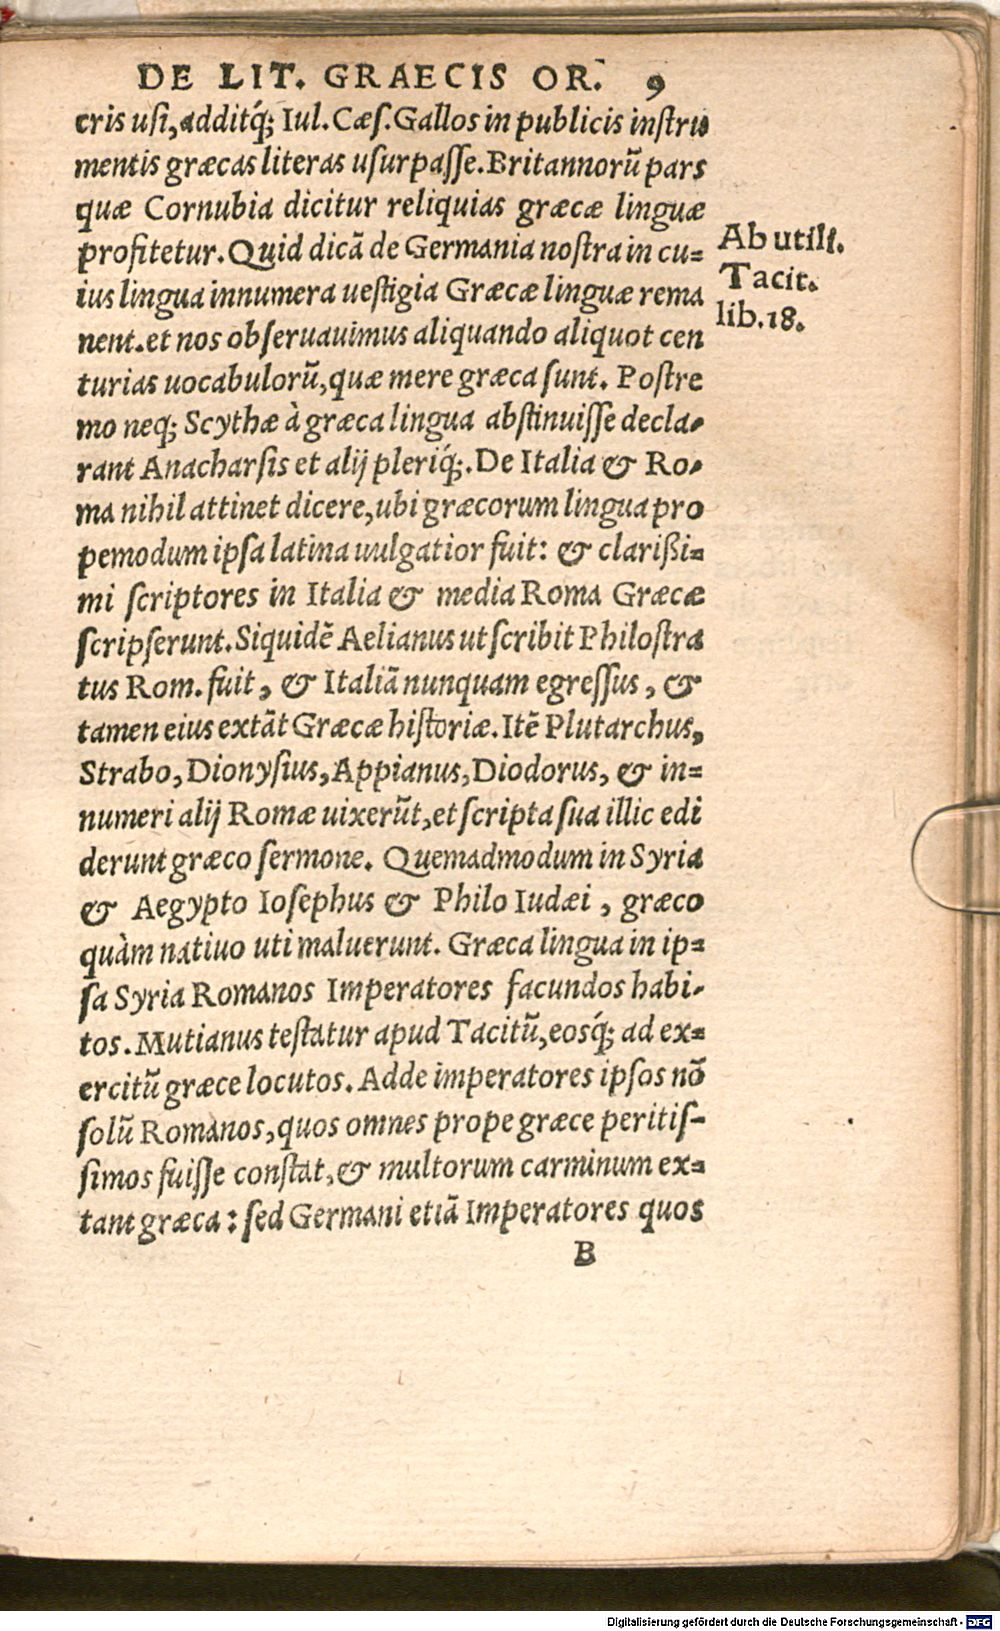 DE LIT. GRAECIS OR. 9
cris usi, additq́; Iul. Cæſ. Gallos in publicis inſtru
mentis græcas literas uſurpaſſe. Britannorũ pars
quæ Cornubia dicitur reliquias græcæ linguæ
profitetur. Quid dicã de Germania noſtra in cu=
ius lingua innumera ueſtigia Græcæ linguæ rema
nent. et nos obſeruauimus aliquando aliquot cen
turias uocabulorũ, quæ mere græca ſunt. Poſtre
mo neq; Scythæ à græca lingua abſtinuiſſe decla-
rant Anacharſis et alij pleriq́;. De Italia & Ro-
ma nihil attinet dicere, ubi græcorum lingua pro
pemodum ipſa latina uulgatior fuit: & clarißi=
mi ſcriptores in Italia & media Roma Græcæ
ſcripſerunt. Siquidẽ Aelianus ut ſcribit Philoſtra
tus Rom. fuit, & Italiã nunquam egreſſus, &
tamen eius extãt Græcæ hiſtoriæ. Itẽ Plutarchus,
Strabo, Dionyſius, Appianus, Diodorus, & in=
numeri alij Romæ uixerũt, et ſcripta ſua illic edi
derunt græco ſermone. Quemadmodum in Syria
& Aegypto Ioſephus & Philo Iudæi, græco
quàm natiuo uti maluerunt. Græca lingua in ip=
ſa Syria Romanos Imperatores facundos habi-
tos. Mutianus teſtatur apud Tacitũ, eosq́; ad ex=
ercitũ græce locutos. Adde imperatores ipſos nõ
ſolũ Romanos, quos omnes prope græce peritiſ-
ſimos fuiſſe conſtat, & multorum carminum ex=
tant græca: ſed Germani etiã Imperatores quos
B
Ab utili.
Tacit.
lib. 18.
Digitalisierung gefördert durch die Deutsche Forschungsgemeinschaft - DFG